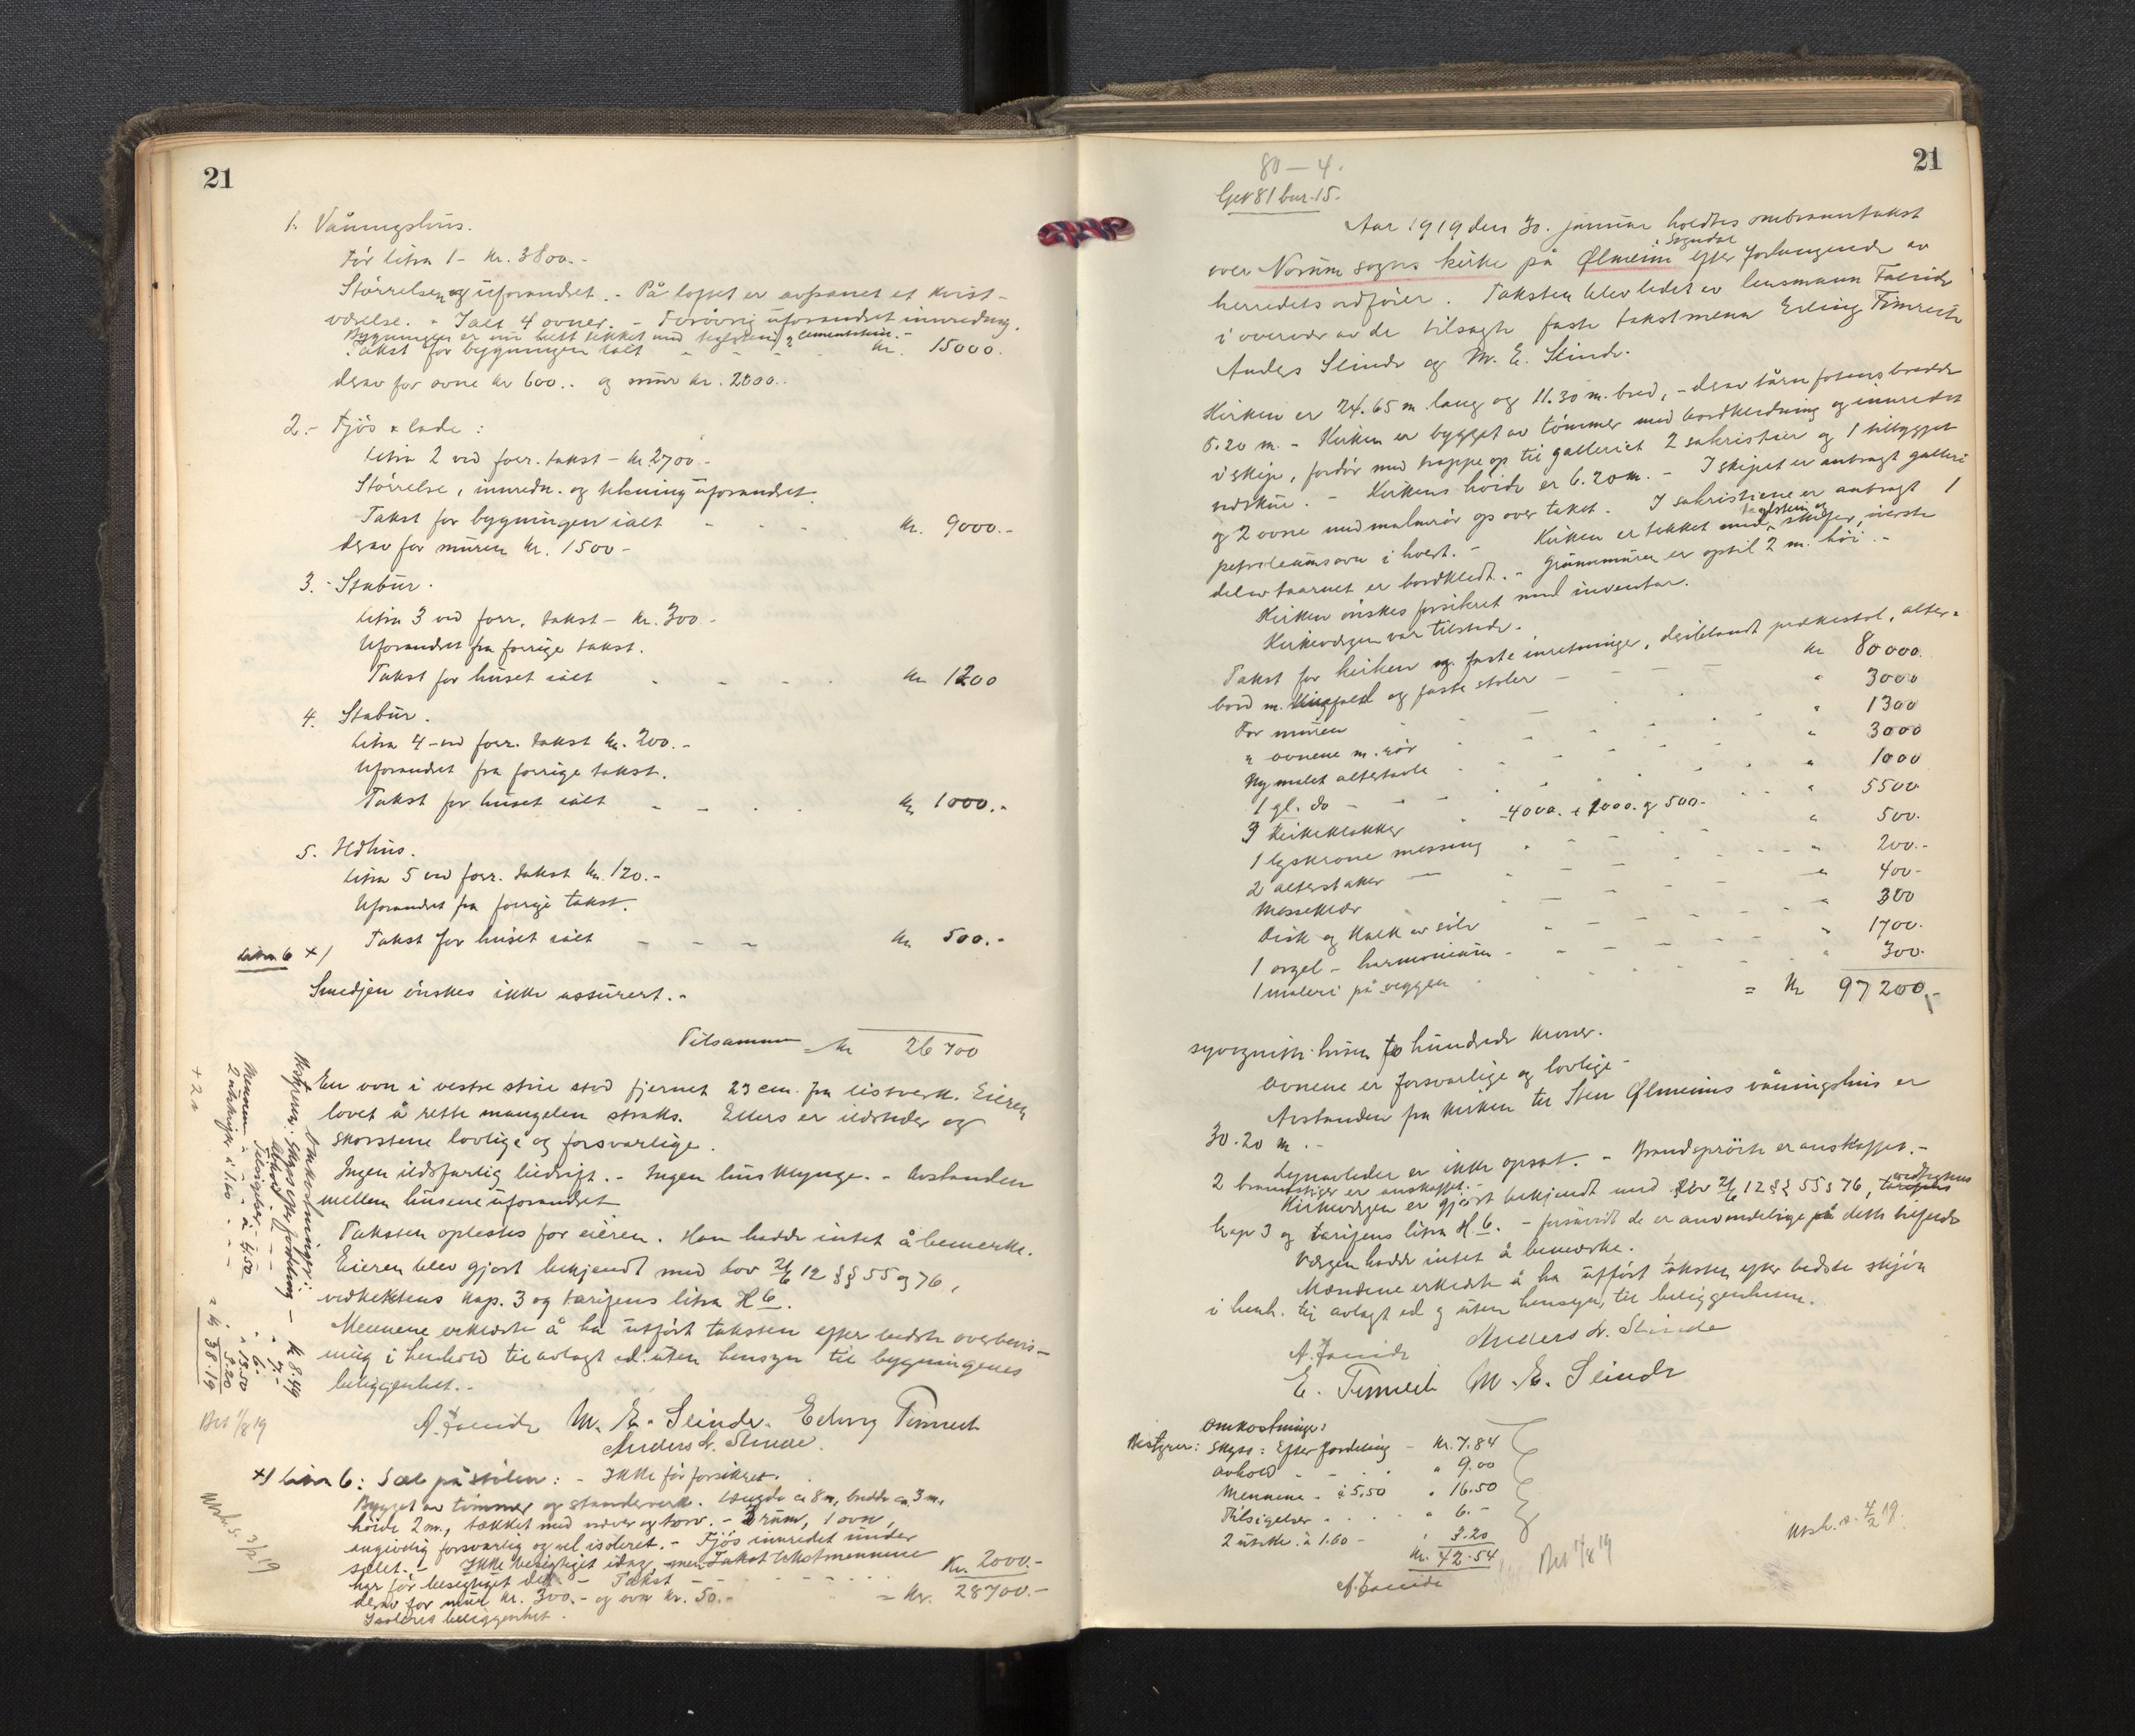 21
1. Våningshus.
Før litra 1 - kr. 3800.-
Størrelsen og uforandret. - På loftet er avpanet et kvist-
værelse. - Ialt 4 ovner. - Forøvrig uforandret innredning.
Bygningen er nu helt tekket med teglsten og cementsten. -
Takst for bygningen ialt - - - - kr. 15000.
derav for ovne kr 600.. og mur kr. 2000..
2.- Fjøs & lade :
Litra 2 ved forr. takst - kr. 2700.-
Størrelse, innredn. og tekning uforandret.
Takst for bygningen ialt - - - kr. 9000.-
derav for muren kr. 1500-
3.- Stabur.
Litra 3 ved forr. takst - kr. 300.-
Uforandret fra forrige takst.
Takst for huset ialt - - - - kr 1200
4. Stabur.
Litra 4 - ved forr. takst kr. 200.-
Uforandret fra forrige takst.
Takst for huset ialt - - - - kr 1000.-
5. Ildhus.
Litra 5 ved forr. takst kr. 120.-
Uforandret fra forrige takst.
Takst for huset ialt - - - kr 500.-
Litra 6 x)
Smedjen ønskes ikke assurert.-
Tilsammen = kr 26700
En ovn i vestre stue stod fjernet 23 cm. fra listverk. Eieren
lovet å rette mangelen straks. Ellers er ildsteder og
skorstene lovlige og forsvarlige.
Ingen ildsfarlig bedrift. - Ingen husklynge. - Avstanden
mellem husene uforandret
Taksten oplestes for eieren. Han hadde intet å bemerke.
Eieren blev gjort bekjendt med lov 21/6 12 §§ 55 og 76,
vedtektens kap. 3 og tarifens litra H 6.
Mennene erklærte å ha utført taksten efter bedste overbevis-
ning i henhold til avlagt ed. uten hensyn til bygningenes
beliggenhet.-
A. Faleide M. E. Slinde. Erling Timreite
Anders A. Slinde.
Omkostninger:
Bestyrer: Skyss efter fordeling - kr 8.49
Avhold - - - " 7.-
Tilsigelser - - " 6.-
Mennene - - à 4.50 " 13.50
2 utskrifter à 1.60 - - " 3.20
= kr 38.19
+ 2 s
Bet 1/8 19
Utsk. s. 3/2 19
x) Litra 6: Sæl på stølen : - Ikke før forsikret.
Bygget av tømmer og standerverk. Længde ca 8 m, bredde ca. 3 m.
høide 2 m., tækket med næver og torv. - 3 rum, 1 ovn,
angivelig forsvarlig og vel isoleret. - Fjøs innredet under
sælet. - Ikke besigtiget idag, men takstmennene
har før besigtiget det. - Takst - - - - Kr. 2000.-
derav for mur kr. 300.- og ovn kr. 50.- = kr. 28700.-
Isolerets beliggenhet.
21
80 - 4.
Gnr 81 bnr. 15.
Aar 1919 den 30. januar holdtes ombranntakst
over Norum sogns kirke på Ølmeim i Sogndal efter forlangende av
herredets ordfører. Taksten blev ledet av lensmann Faleide
i overvær av de tilsagte faste takstmenn Erling Timreite
Anders Slinde og M. E. Slinde.
Kirken er 24.65 m. lang og 11.30 m. bred, - derav tårnfotens bredde
5.20 m. - Kirken er bygget av tømmer med bordklædning og innredet
i skip, fordør med trappe op til galleriet 2 sakristier og 1 tilbygget
vedskur. - Kirkens høide er 6.20 m. - I skipet er anbragt galleri
og 2 ovne med malmrør op over taket. I sakristiene er anbragt 1
petroleumsovn i hvert. - Kirken er tekket med teglsten og skifer, øverste
del av taarnet er bordkledt. - Grunnmuren er optil 2 m. høi. -
Kirken ønskes forsikret med inventar.
Kirkeværgen var tilstede.
Takst for kirken og faste inretninger, deriblandt prækestol, alter-
bord m. knefall og faste stoler - - - kr 80000.
For muren " 3000
" ovnene m. rør " 1300
Ny malet altertavle " 3000
1 gl. do - - " 1000
3 kirkeklokker - 4000. + 1000. og 500.- " 5500
1 lyskrone messing " 500.
2 alterstaker " 200.-
Messeklær " 400-
Disk og kalk av sølv " 300
1 orgel - harmonium - " 1700.
1 maleri på veggen " 300.
= kr 97200.-
syvognitti tusen to hundrede kroner.
Ovnene er forsvarlige og lovlige -
Avstanden fra kirken til Sten Ølmeims våningshus er
30.20 m. -
Lynavleder er ikke opsat. - Brandsprøite er anskaffet. -
2 brannstiger er anskaffet. -
Kirkeværgen er gjort bekjendt med lov 21/6 12 §§ 55 & 76, vedtektens
kap 3 og tarifens litra H. 6. - forsåvidt de er anvendelige på dette tilfælde
Værgen hadde intet å bemerke.
Mændene erklærte å ha utført taksten efter bedste skjøn
i henh. til avlagt ed og uten hensyn til beliggenheten.
A. Faleide Anders A. Slinde
E. Timreite M. E. Slinde
Omkostninger:
Bestyrer: Skyss: Efter fordeling - kr. 7.84
Avhold - - - " 9.00
Mennene. à 5.50 " 16.50
Tilsigelser " 6.-
2 utskr. à 1.60 - " 3.20
kr. 42.54
A. Faleide
Bet 1/8 19
Utsk. s. 4/2 19.